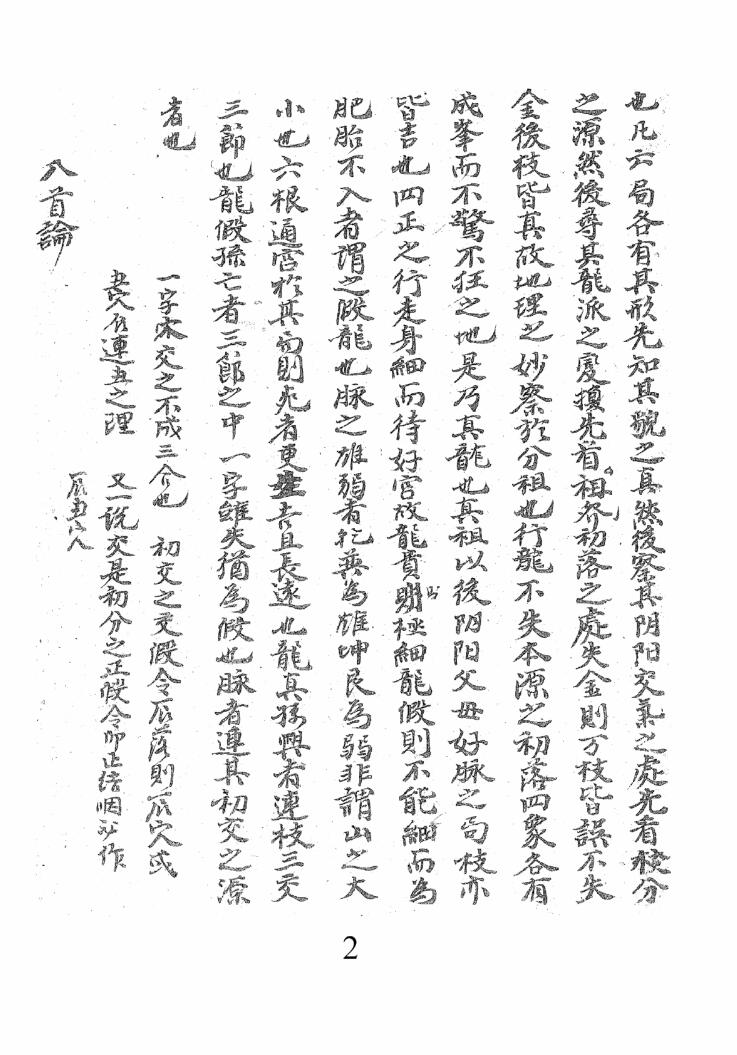 也凡六局各有其形先知其貌之真然後察其阴阳交氣之處先看枝分
之源然後尋其龍派之変換先看祖祭初落之處失金則万枝皆誤不失
金後枝皆真故地理之妙察扵分祖也行龍不失本源之初落四象各有
成峯而不驚不狂之地是乃真龍也真祖以後阴阳父母好脉之局枝亦
皆吉也四正之行走身細而待好宮故龍貴則極細龍假則不能細而為
肥胎不入者謂之假龍也脉之雄弱者乾巽為雄坤艮為弱非謂山之大
小也六根通宮扵其局則死者更生吉且長遠也龍真孫興者連枝三交
三節也龍假孫亡者三節之中一字雖失猶為假也脉者連其初交之源
者也
一字不交之不成三介也 初交之交假令辰落則辰穴或
連丑之理 又一說交是初分之正假令卯正結咽 作
辰 穴
八首論
2